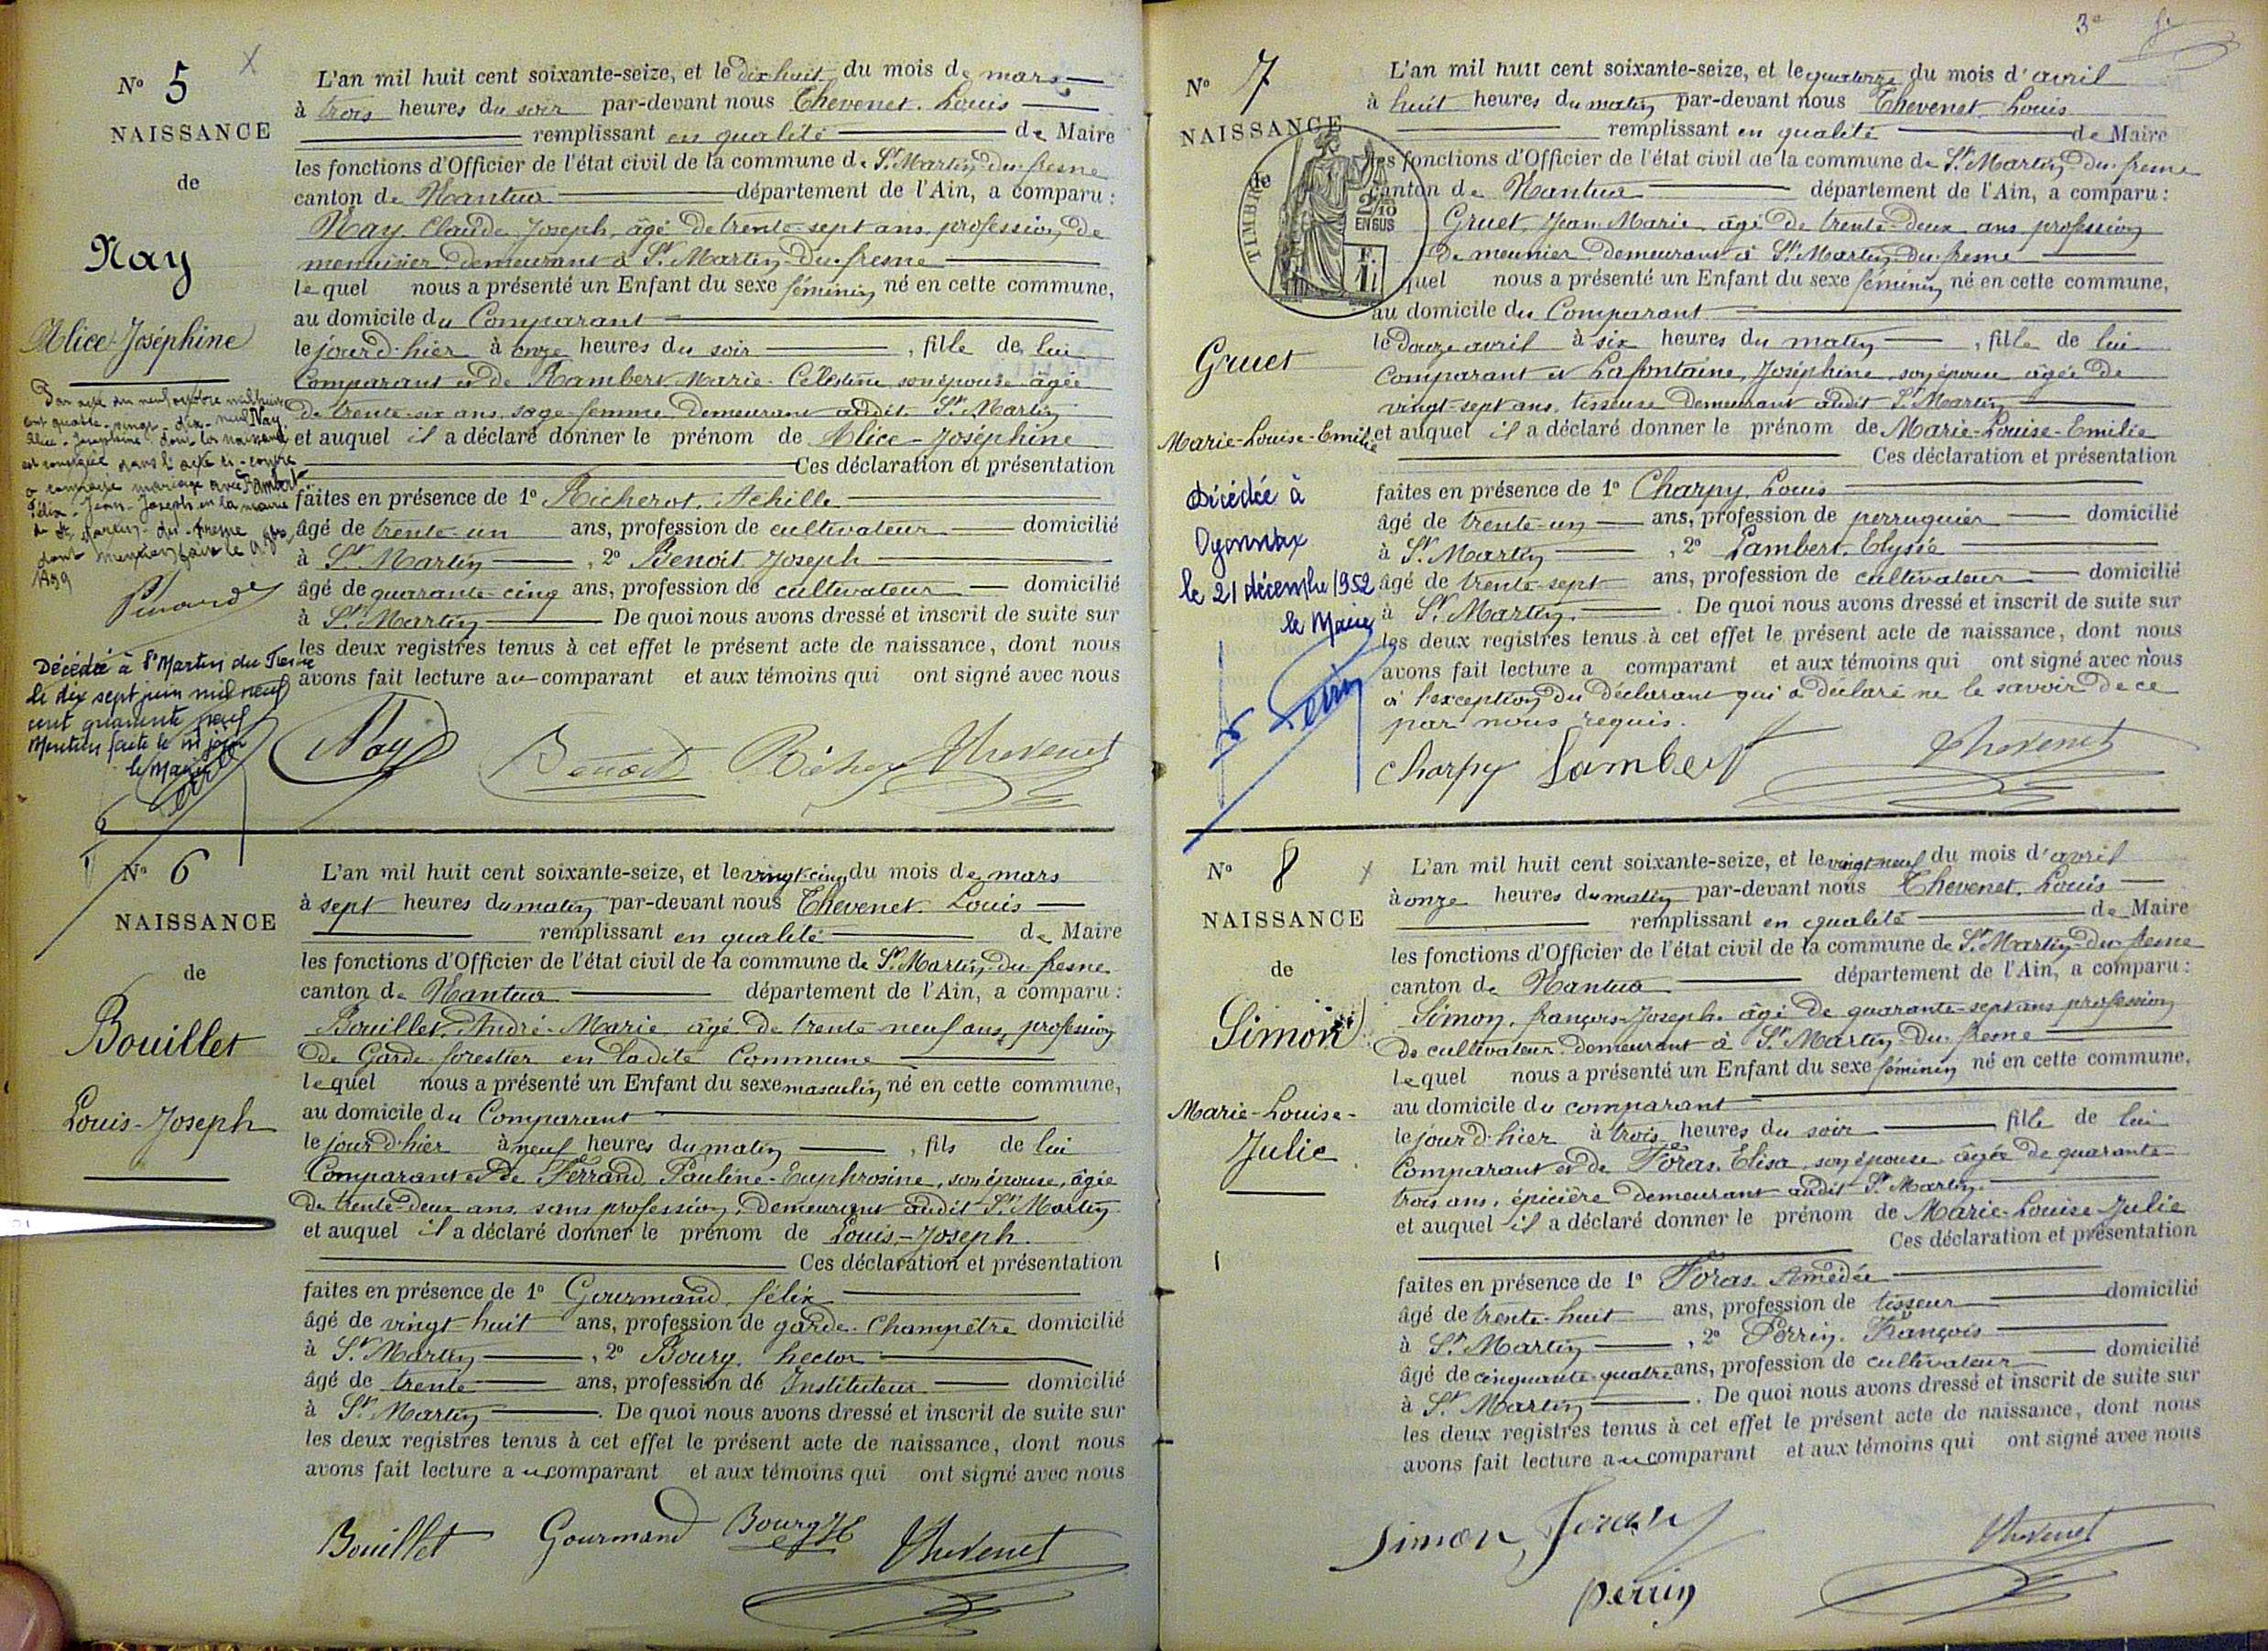 Nº 5
NAISSANCE
de
Nay
Alice-Joséphine
Par acte du neuf octobre mil huit
cent quatre-vingt-dix-neuf Nay
Alice-Joséphine dont la naissance
est consignée dans l'acte ci-contre
a contracté mariage avec Rambert
Félix-Jean-Joseph en la mairie
de St Martin-du-Fresne
dont mention faite le 9 8bre
1899
Décédée à St Martin du Fresne
le dix sept juin mil neuf
cent quarante neuf
Mention faite le m jour
le Maire
L'an mil huit cent soixante-seize, et le dix huit du mois de mars
à trois heures du soir par-devant nous Thevenet Louis
remplissant en qualité de Maire
les fonctions d'Officier de l'état civil de la commune de St Martin-du-fresne
canton de Nantua département de l'Ain, a comparu :
Nay Claude Joseph, âgé de trente-sept ans, profession de
menuisier demeurant à St Martin-du-fresne
lequel nous a présenté un Enfant du sexe féminin né en cette commune,
au domicile du Comparant
le jour d'hier à onze heures du soir , fille de lui
Comparant et de Rambert Marie-Célestine son épouse âgée
de trente-six ans, sage-femme demeurant audit St Martin
et auquel il a déclaré donner le prénom de Alice-Joséphine
Ces déclaration et présentation
faites en présence de 1º Richerot, Achille
âgé de trente-un ans, profession de cultivateur domicilié
à St Martin , 2º Benoit Joseph
âgé de quarante-cinq ans, profession de cultivateur domicilié
à St Martin De quoi nous avons dressé et inscrit de suite sur
les deux registres tenus à cet effet le présent acte de naissance, dont nous
avons fait lecture au comparant et aux témoins qui ont signé avec nous
Nay Benoit Richerot Thevenet
Nº 6
NAISSANCE
de
Bouillet
Louis-Joseph
L'an mil huit cent soixante-seize, et le vingt-cinq du mois de mars
à sept heures du matin par-devant nous Thevenet Louis
remplissant en qualité de Maire
les fonctions d'Officier de l'état civil de la commune de St Martin-du-fresne
canton de Nantua département de l'Ain, a comparu :
Bouillet, André-Marie âgé de trente neuf ans, profession
de Garde-forestier en ladite Commune
lequel nous a présenté un Enfant du sexe masculin né en cette commune,
au domicile du Comparant
le jour d'hier à neuf heures du matin , fils de lui
Comparant et de Ferrand, Pauline-Euphrosine, son épouse, âgée
de trente-deux ans, sans profession, demeurant audit St Martin
et auquel il a déclaré donner le prénom de Louis-Joseph.
Ces déclaration et présentation
faites en présence de 1º Gourmand, félix
âgé de vingt-huit ans, profession de garde-Champêtre domicilié
à St Martin , 2º Bourg, hector
âgé de trente ans, profession de Instituteur domicilié
à St Martin . De quoi nous avons dressé et inscrit de suite sur
les deux registres tenus à cet effet le présent acte de naissance, dont nous
avons fait lecture au comparant et aux témoins qui ont signé avec nous
Bouillet Gourmand Bourg H Thevenet
3e
Nº 7
NAISSANCE
de
TIMBRE
2/10
EN SUS
F.
Gruet
Marie-Louise-Emilie
Décédée à
Oyonnax
le 21 décembre 1952
le Maire
L'an mil huit cent soixante-seize, et le quatorze du mois d'avril
à huit heures du matin par-devant nous Thevenet Louis
remplissant en qualité de Maire
les fonctions d'Officier de l'état civil de la commune de St Martin-du-fresne
canton de Nantua département de l'Ain, a comparu :
Gruet, Jean-Marie âgé de trente-deux ans profession
de meunier demeurant à St Martin-du-fresne
lequel nous a présenté un Enfant du sexe féminin né en cette commune,
au domicile du Comparant
le douze avril à six heures du matin , fille de lui
Comparant et Lafontaine, Joséphine, son épouse âgée de
vingt-sept ans, tisseuse demeurant audit St Martin
et auquel il a déclaré donner le prénom de Marie-Louise-Emilie
Ces déclaration et présentation
faites en présence de 1º Charpy, Louis
âgé de trente-un ans, profession de perruquier domicilié
à St Martin , 2º Lambert, Elysée
âgé de trente-sept ans, profession de cultivateur domicilié
à St Martin . De quoi nous avons dressé et inscrit de suite sur
les deux registres tenus à cet effet le présent acte de naissance, dont nous
avons fait lecture a comparant et aux témoins qui ont signé avec nous
à l'exception du déclarant qui a déclaré ne le savoir de ce
par nous requis.
Charpy Lambert Thevenet
Nº 8
NAISSANCE
de
Simon
Marie-Louise-
Julie
L'an mil huit cent soixante-seize, et le vingt neuf du mois d'avril
à onze heures du matin par-devant nous Thevenet, Louis
remplissant en qualité de Maire
les fonctions d'Officier de l'état civil de la commune de St Martin-du-fresne
canton de Nantua département de l'Ain, a comparu :
Simon, françois-Joseph, âgé de quarante-sept ans profession
de cultivateur demeurant à St Martin-du-fresne
lequel nous a présenté un Enfant du sexe féminin né en cette commune,
au domicile du comparant
le jour d'hier à trois heures du soir fille de lui
Comparant et de Foras, Elisa, son épouse âgée de quarante-
trois ans, épicière demeurant audit St Martin
et auquel il a déclaré donner le prénom de Marie-Louise-Julie
Ces déclaration et présentation
faites en présence de 1º Foras Amédée
âgé de trente-huit ans, profession de tisseur domicilié
à St Martin , 2º Perrin, François
âgé de cinquante-quatre ans, profession de cultivateur domicilié
à St Martin . De quoi nous avons dressé et inscrit de suite sur
les deux registres tenus à cet effet le présent acte de naissance, dont nous
avons fait lecture au comparant et aux témoins qui ont signé avec nous
Simon Foras Thevenet
Perrin